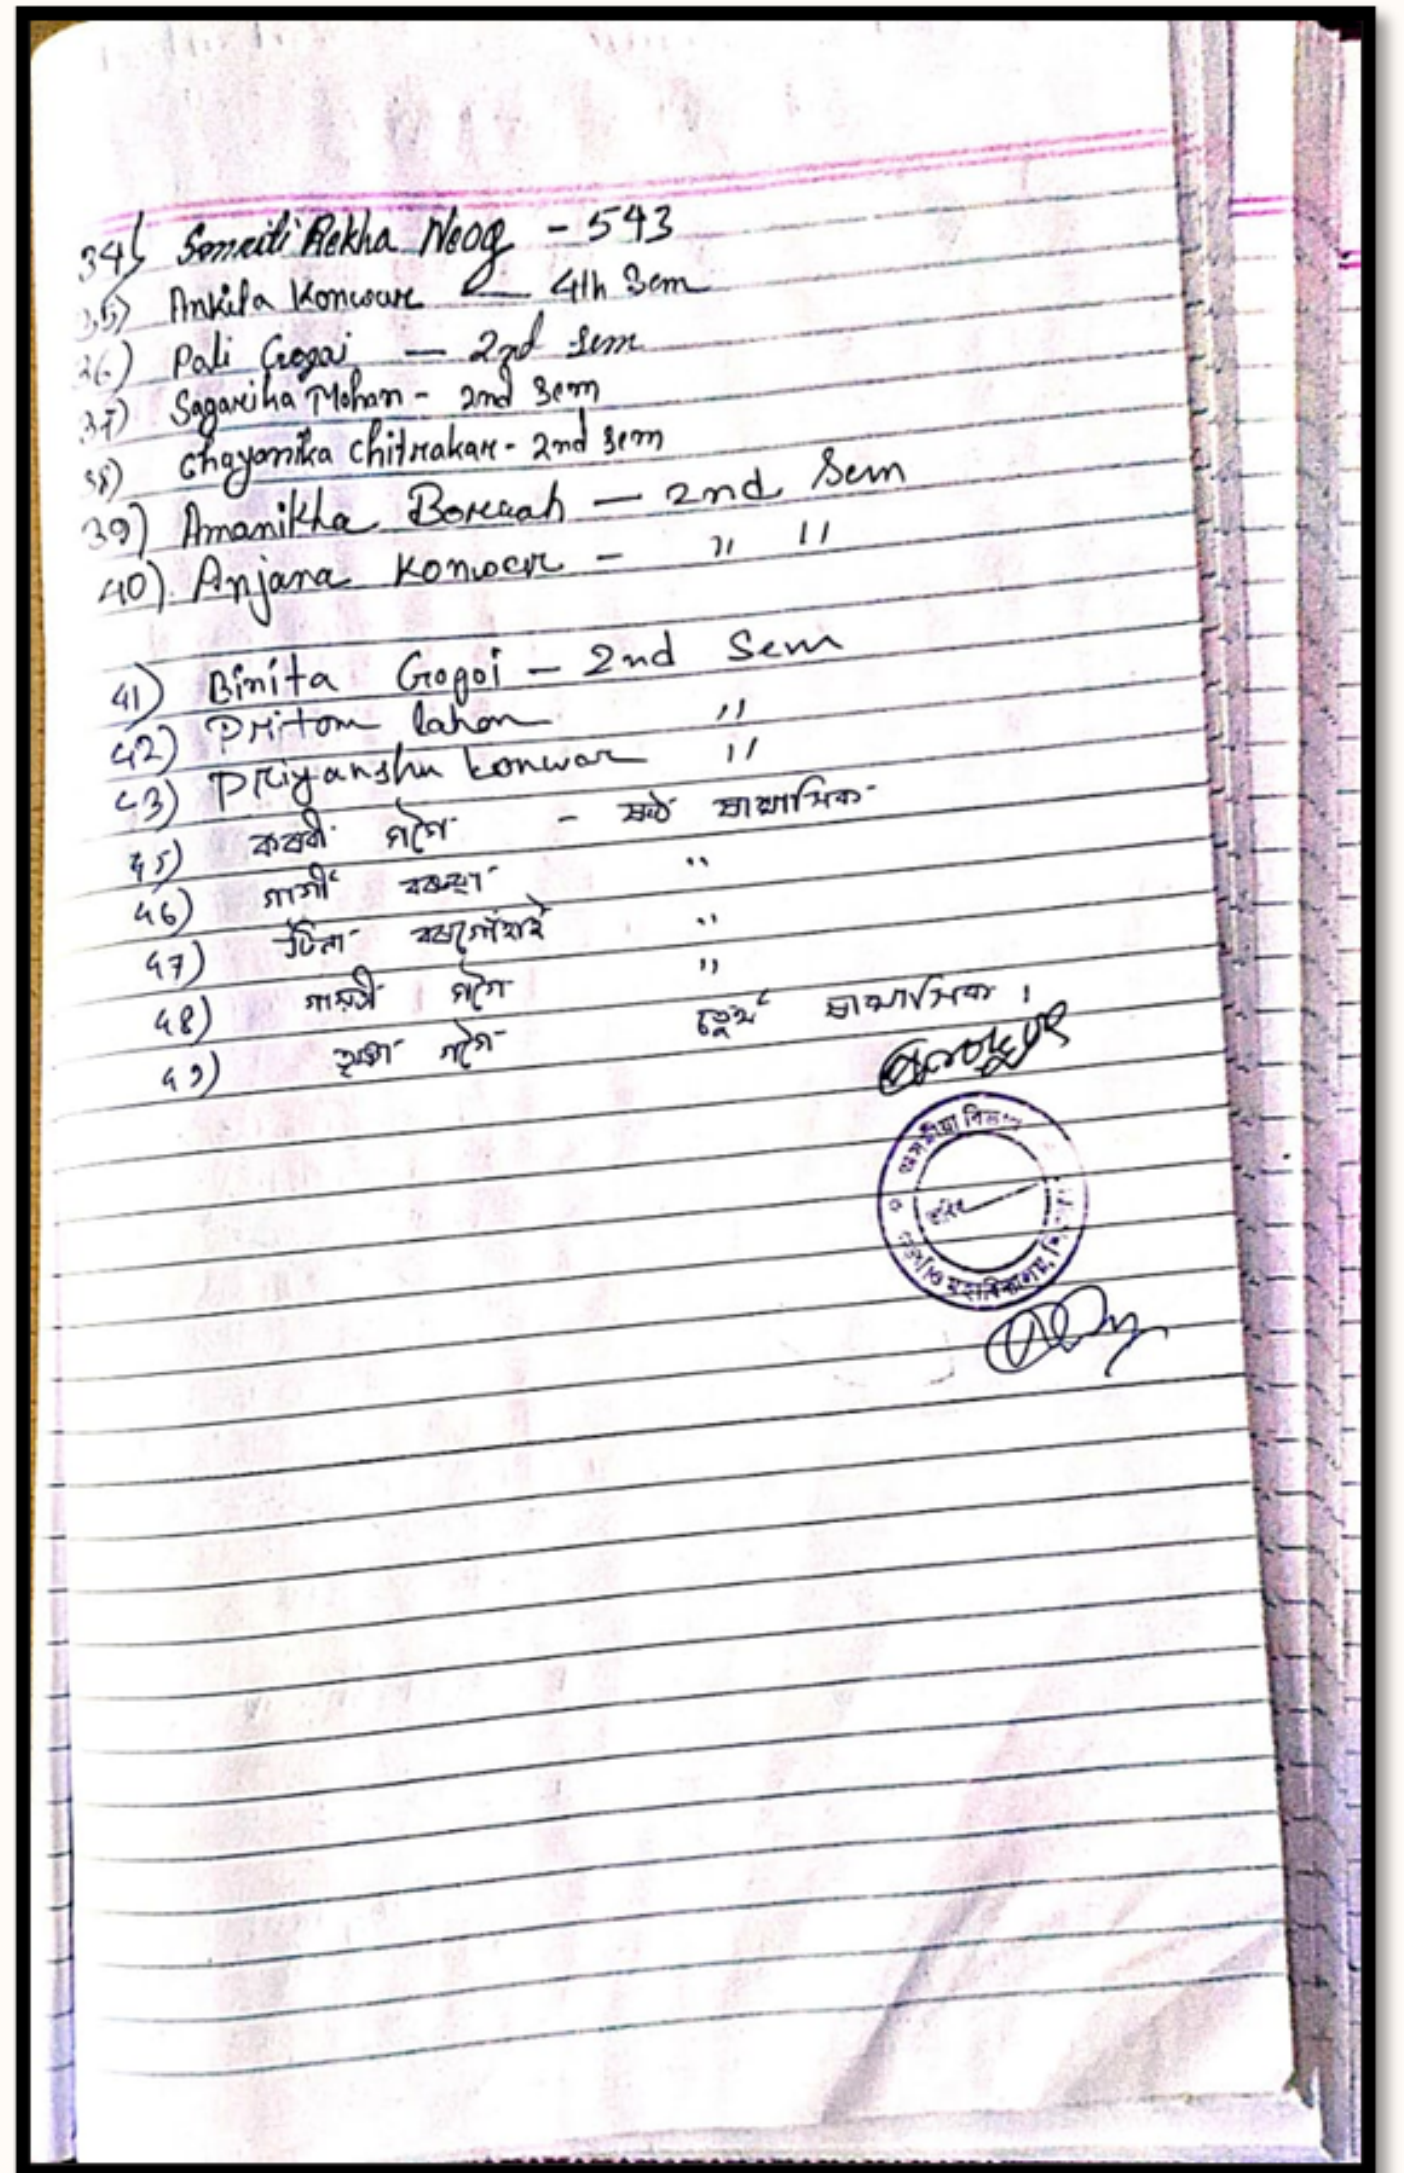 34) Smriti Rekha Neog - 543
35) Ankita Konwar — 4th Sem
36) Pali Gogoi — 2nd Sem
37) Sagarika Mohan - 2nd Sem
38) Chayanika Chitrakar - 2nd Sem
39) Amanikha Boruah — 2nd Sem
40) Anjana Konwar - " "
41) Binita Gogoi - 2nd Sem
42) Pritom lahon "
43) Priyanshu konwar "
45) কৰবী গগৈ - ষষ্ঠ ষাণ্মাসিক
46) গাৰ্গী বৰুৱা "
47) বৰগোঁহাই "
48) গায়ত্ৰী গগৈ "
49) তৃষ্ণা গগৈ চতুৰ্থ ষাণ্মাসিক ।
অসমীয়া বিভাগ
মহাবিদ্যালয়,